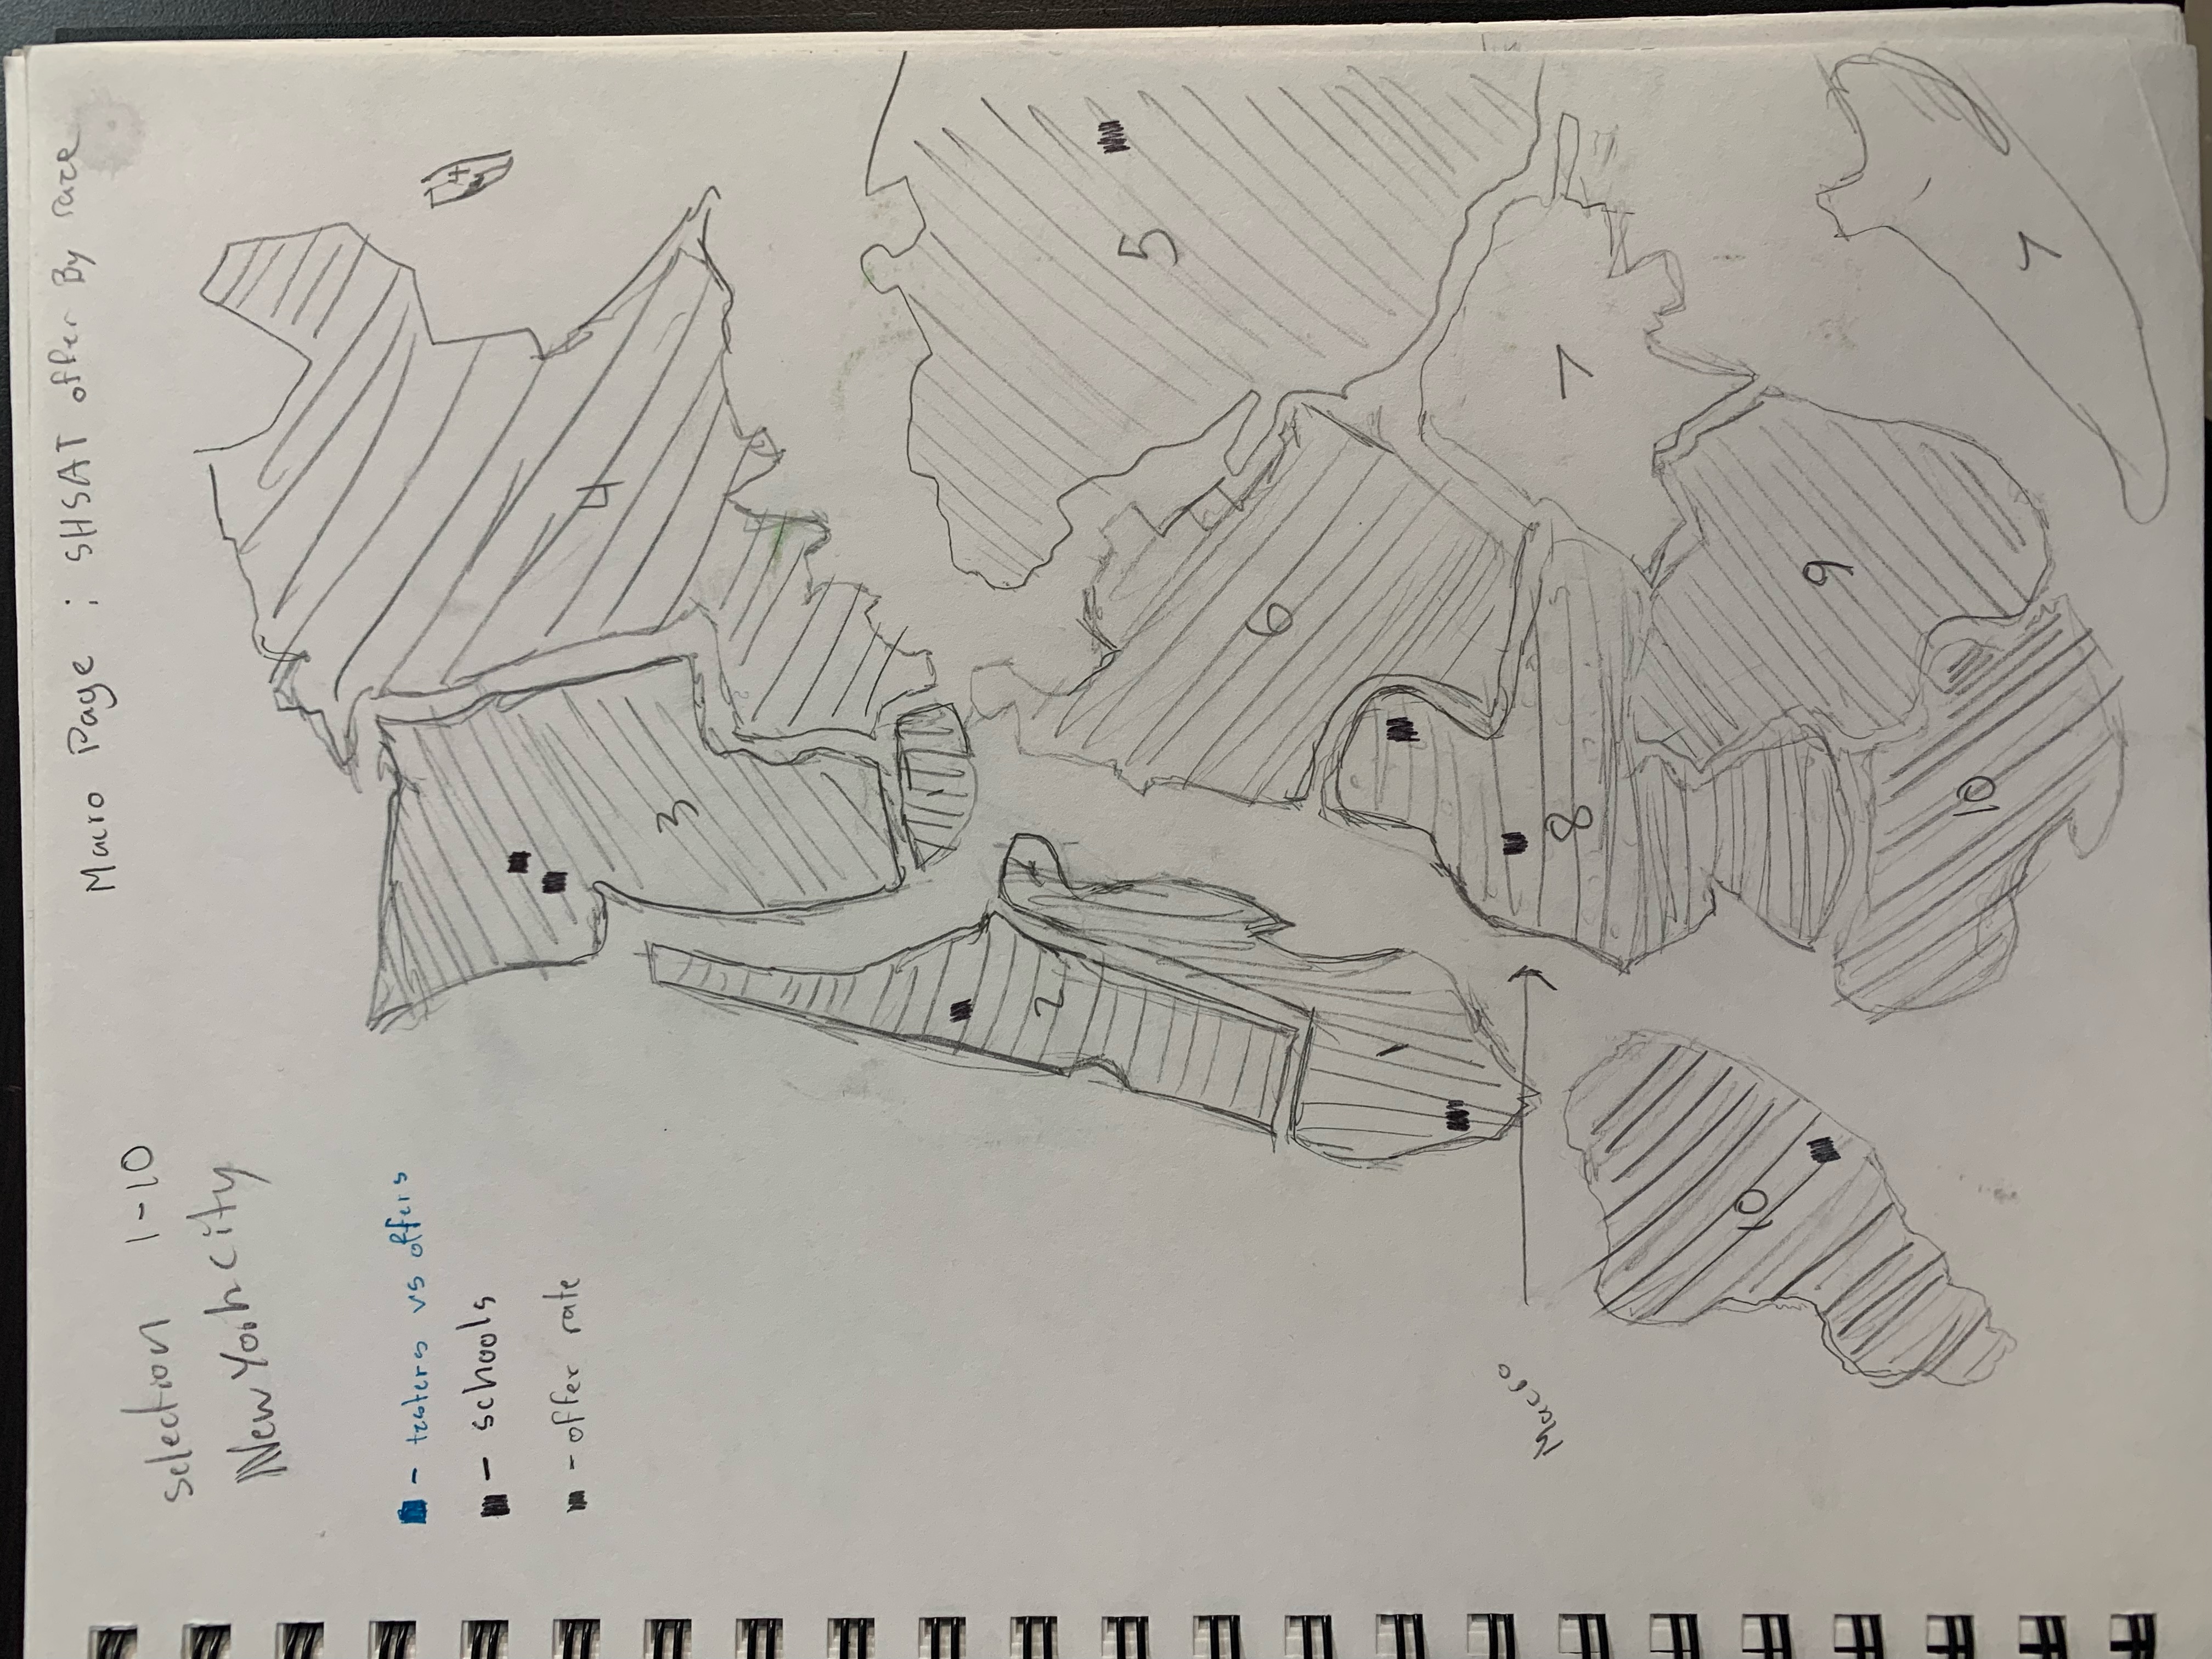 Macro Page ; SHSAT offer By race
selection 1-10
New York city
- testers vs offers
- schools
- offer rate
4
4
3
2
5
6
1
Macro
8
7
10
9
10
7